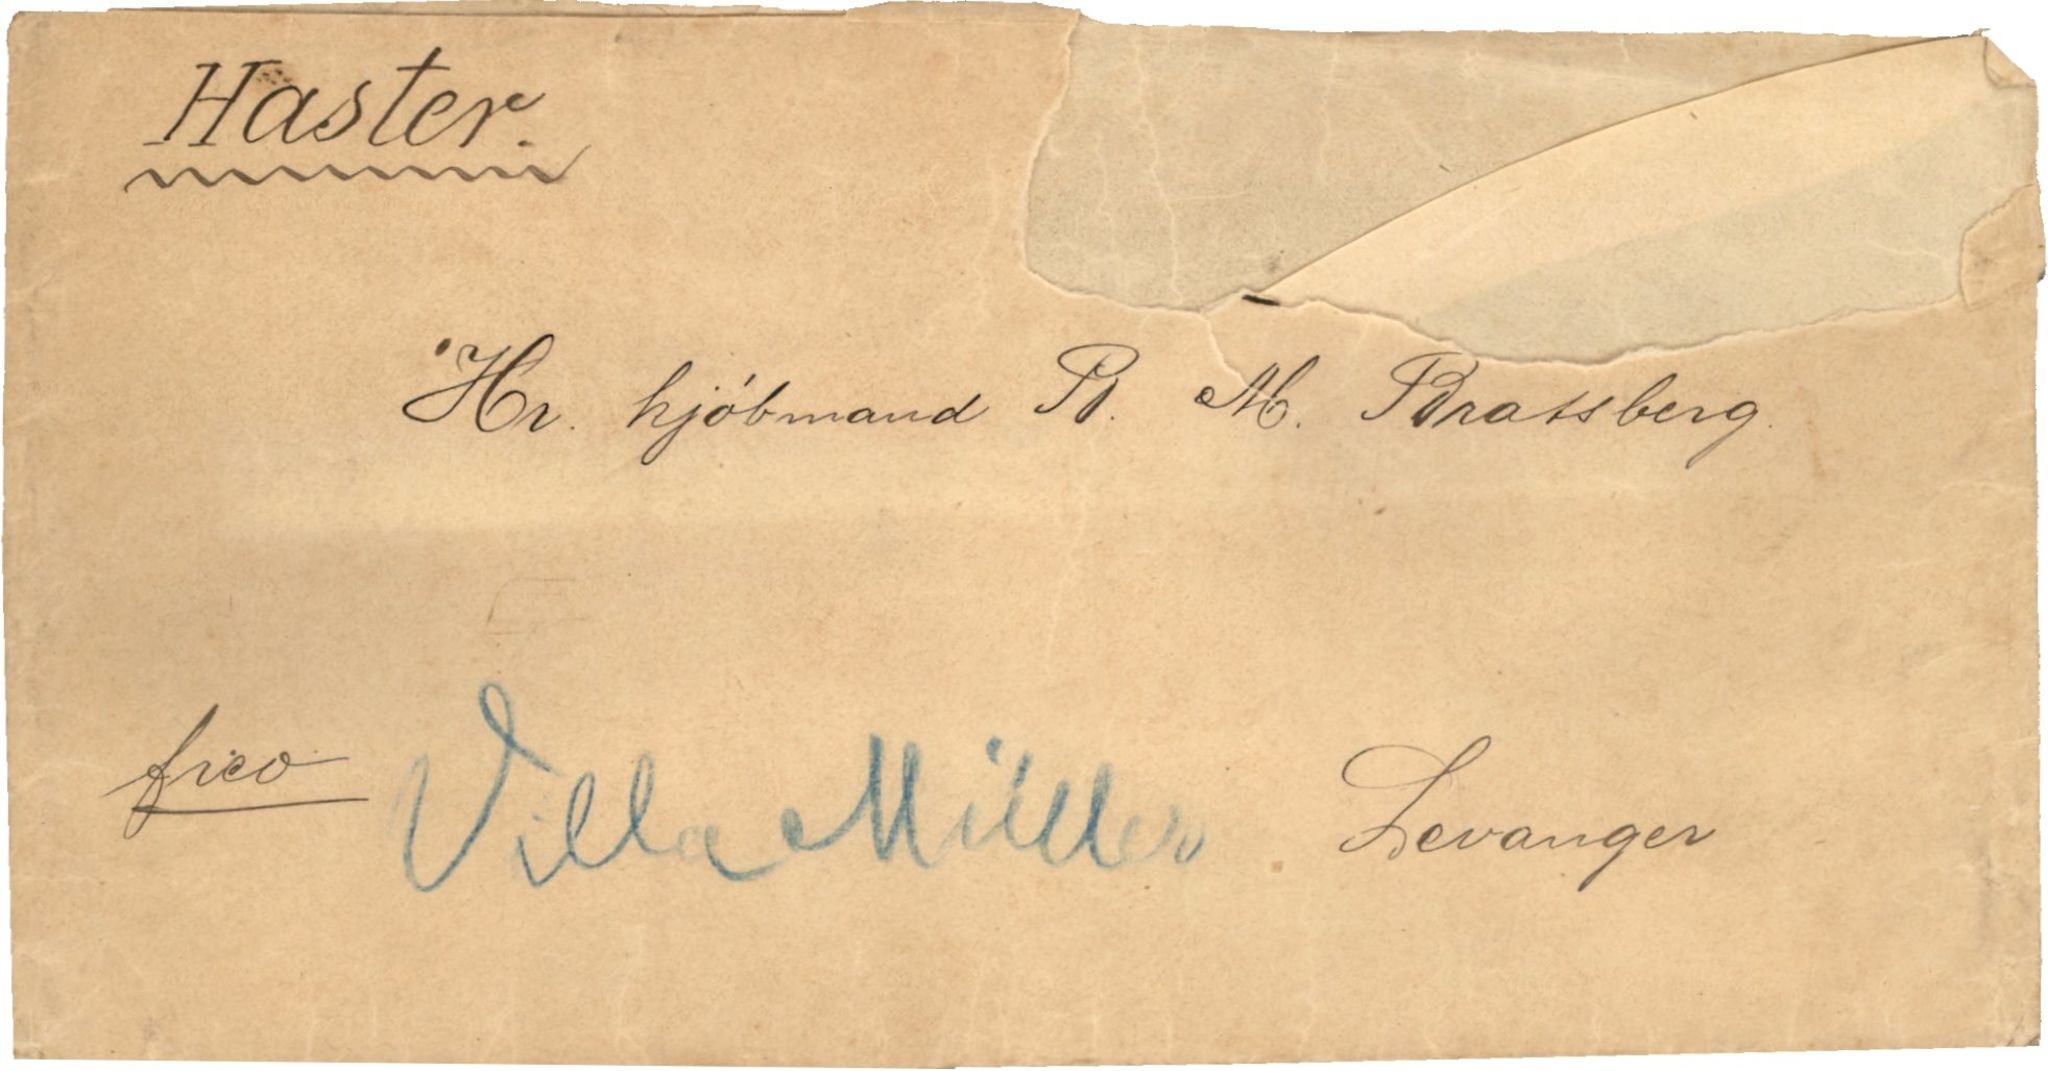 Haster.
Hr. kjøbmand P. M. Bratsberg.
frco Villa Müller Levanger